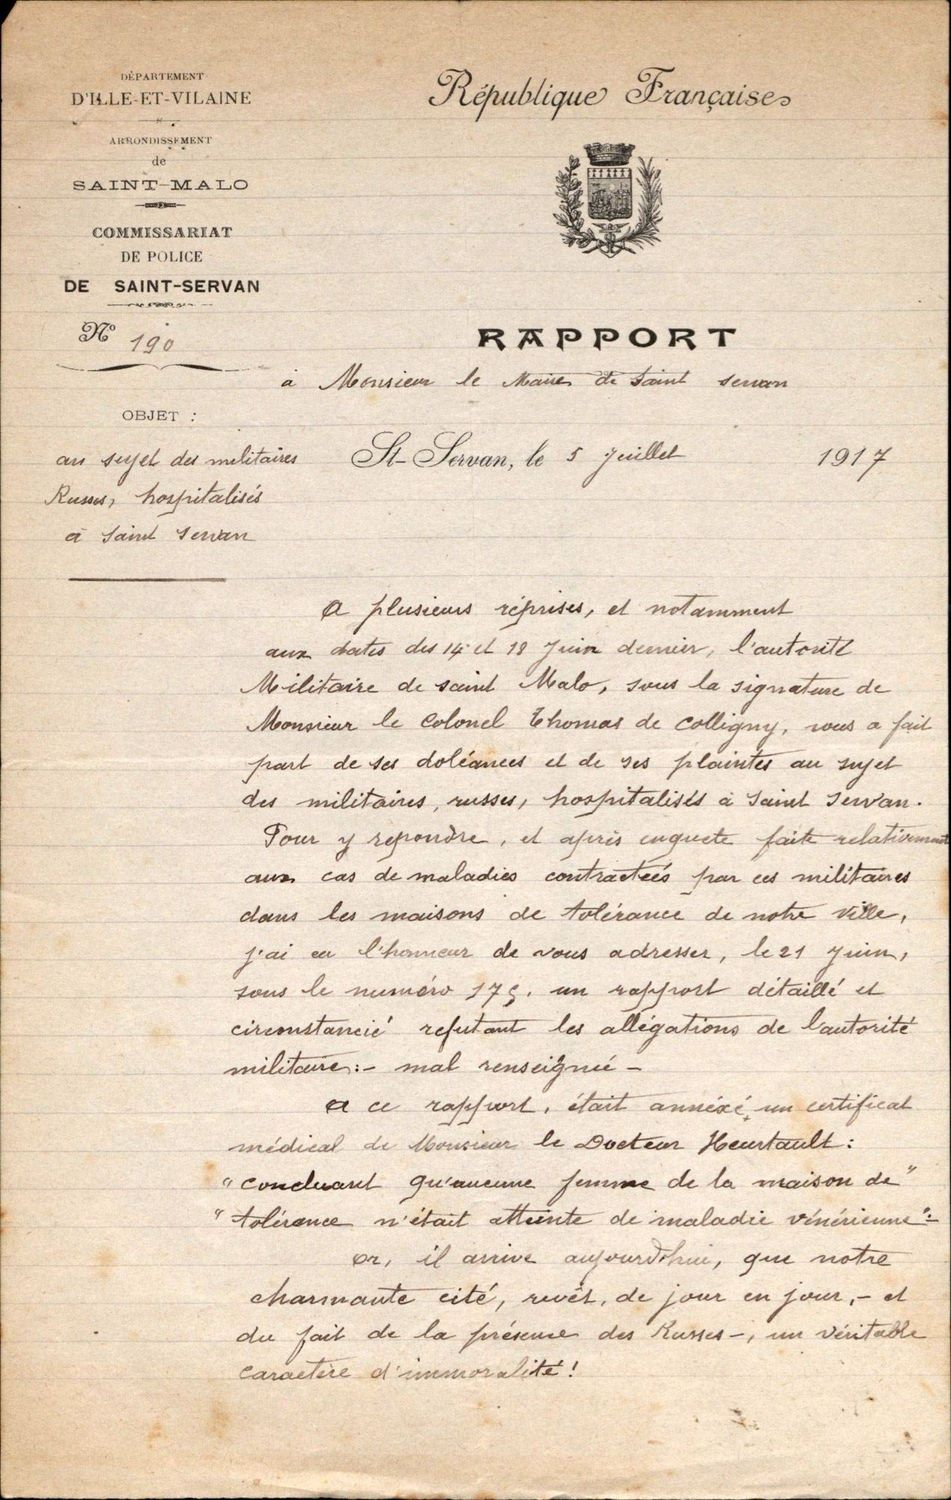 DÉPARTEMENT
D'ILLE-ET-VILAINE
ARRONDISSEMENT
de
SAINT-MALO
COMMISSARIAT
DE POLICE
DE SAINT-SERVAN
N° 190
OBJET :
au sujet des militaires
Russes, hospitalisés
à Saint Servan
République Française
RAPPORT
à Monsieur le Maire de Saint Servan
St-Servan, le 5 Juillet 1917
A plusieurs réprises, et notamment
aux dates des 14 et 18 Juin dernier, l'autorité
Militaire de saint Malo, sous la signature de
Monsieur le Colonel Thomas de Colligny, vous a fait
part de ses doléances et de ses plaintes au sujet
des militaires, russes, hospitalisés à Saint Servan.
Pour y repondre, et après enquete faite relativement
aux cas de maladies contractées par ces militaires
dans les maisons de tolérance de notre ville,
j'ai eu l'honneur de vous adresser, le 21 Juin,
sous le numéro 175, un rapport détaillé et
circonstancié refutant les allégations de l'autorité
militaire:- mal renseignée -
A ce rapport, était annéxé, un certificat
médical de Monsieur le Docteur Heurtault :
"Concluant qu'aucune femme de la maison de"
"tolérance n'était atteinte de maladie vénérienne":-
Or, il arrive aujourd'hui, que notre
charmante cité, revêt, de jour en jour,- et
du fait de la présence des Russes -, un véritable
caractère d'immoralité!